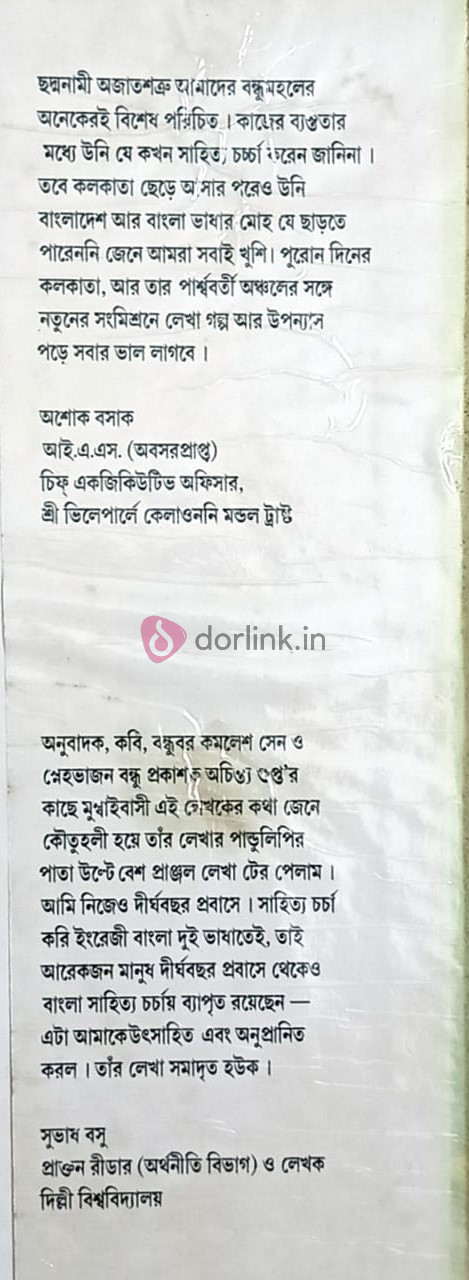 ছদ্মনামী অজাতশত্রু আমাদের বন্ধুমহলের
অনেকেরই বিশেষ পরিচিত । কাজের ব্যস্ততার
মধ্যে উনি যে কখন সাহিত্য চর্চ্চা করেন জানিনা ।
তবে কলকাতা ছেড়ে আসার পরেও উনি
বাংলাদেশ আর বাংলা ভাষার মোহ যে ছাড়তে
পারেননি জেনে আমরা সবাই খুশি। পুরোন দিনের
কলকাতা, আর তার পার্শ্ববর্তী অঞ্চলের সঙ্গে
নতুনের সংমিশ্রনে লেখা গল্প আর উপন্যাস
পড়ে সবার ভাল লাগবে ।
অশোক বসাক
আই.এ.এস. (অবসরপ্রাপ্ত)
চিফ্ একজিকিউটিভ অফিসার,
শ্রী ভিলেপার্লে কেলাওননি মন্ডল ট্রাষ্ট
dorlink.in
অনুবাদক, কবি, বন্ধুবর কমলেশ সেন ও
স্নেহভাজন বন্ধু প্রকাশক অচিন্ত্য গুপ্ত'র
কাছে মুম্বাইবাসী এই লেখকের কথা জেনে
কৌতুহলী হয়ে তাঁর লেখার পান্ডুলিপির
পাতা উল্টে বেশ প্রাঞ্জল লেখা টের পেলাম ।
আমি নিজেও দীর্ঘবছর প্রবাসে । সাহিত্য চর্চা
করি ইংরেজী বাংলা দুই ভাষাতেই, তাই
আরেকজন মানুষ দীর্ঘবছর প্রবাসে থেকেও
বাংলা সাহিত্য চর্চায় ব্যাপৃত রয়েছেন —
এটা আমাকেউৎসাহিত এবং অনুপ্রানিত
করল । তাঁর লেখা সমাদৃত হউক ।
সুভাষ বসু
প্রাক্তন রীডার (অর্থনীতি বিভাগ) ও লেখক
দিল্লী বিশ্ববিদ্যালয়